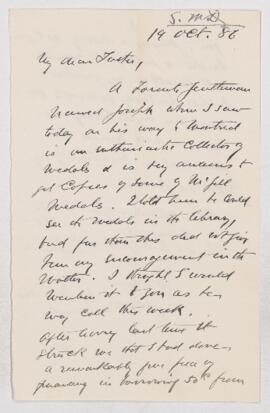 S. M D
19 Oct. 86
My dear Foster,
A Toronto gentleman
named Joseph whom I saw
today on his way to Montreal
is an enthusiastic collector of
Medals & is very anxious to
get Copies of some of McGill
Medals. I told him he could
see the Medals in the library
but further than this did not give
him any encouragement in the
Matter. I thought I would
Mention it to you as he
may call this week.
After having sent him it
struck me that I had done
a remarkably fine piece of
in borrowing 50¢ from